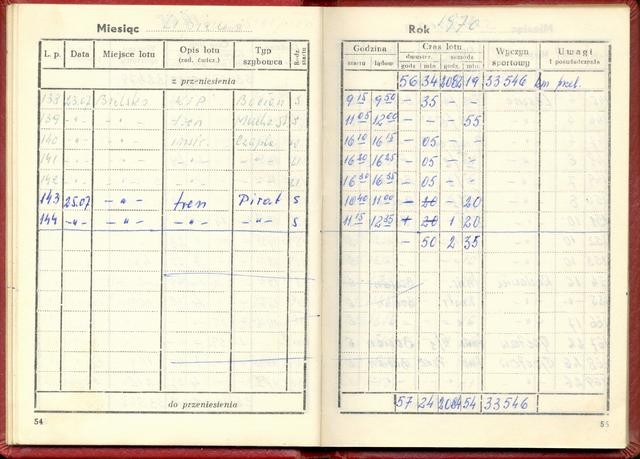 Miesiąc
L. p. Data Miejsce lotu Opis lotu (zad. ćwicz.) Typ szybowca Rodz. startu
z przeniesienia
138 23.07 Bielsko Bocian S
139 -"- -"- tren Mucha St S
140 -"- -"- instr. Czapla
141 -"- -"- -"- -"-
142 -"- -"- -"- -"-
143 25.07 -"- tren Pirat S
144 -"- -"- -"- -"- S
do przeniesienia
54
Rok 1970
Godzina Czas lotu Wyczyn sportowy Uwagi i poświadczenia
startu lądow. dwuster. samodz.
godz. min. godz. min.
56 34 2082 19 33546 km przel.
9 15 9 50 - 35 - -
11 05 12 00 - - - 55
16 10 16 15 - 05 - -
16 20 16 25 - 05 - -
16 30 16 35 - 05 - -
10 40 11 00 - 20 - 20
11 15 12 35 20 1 20
- 50 2 35
57 24 2084 54 33546
55